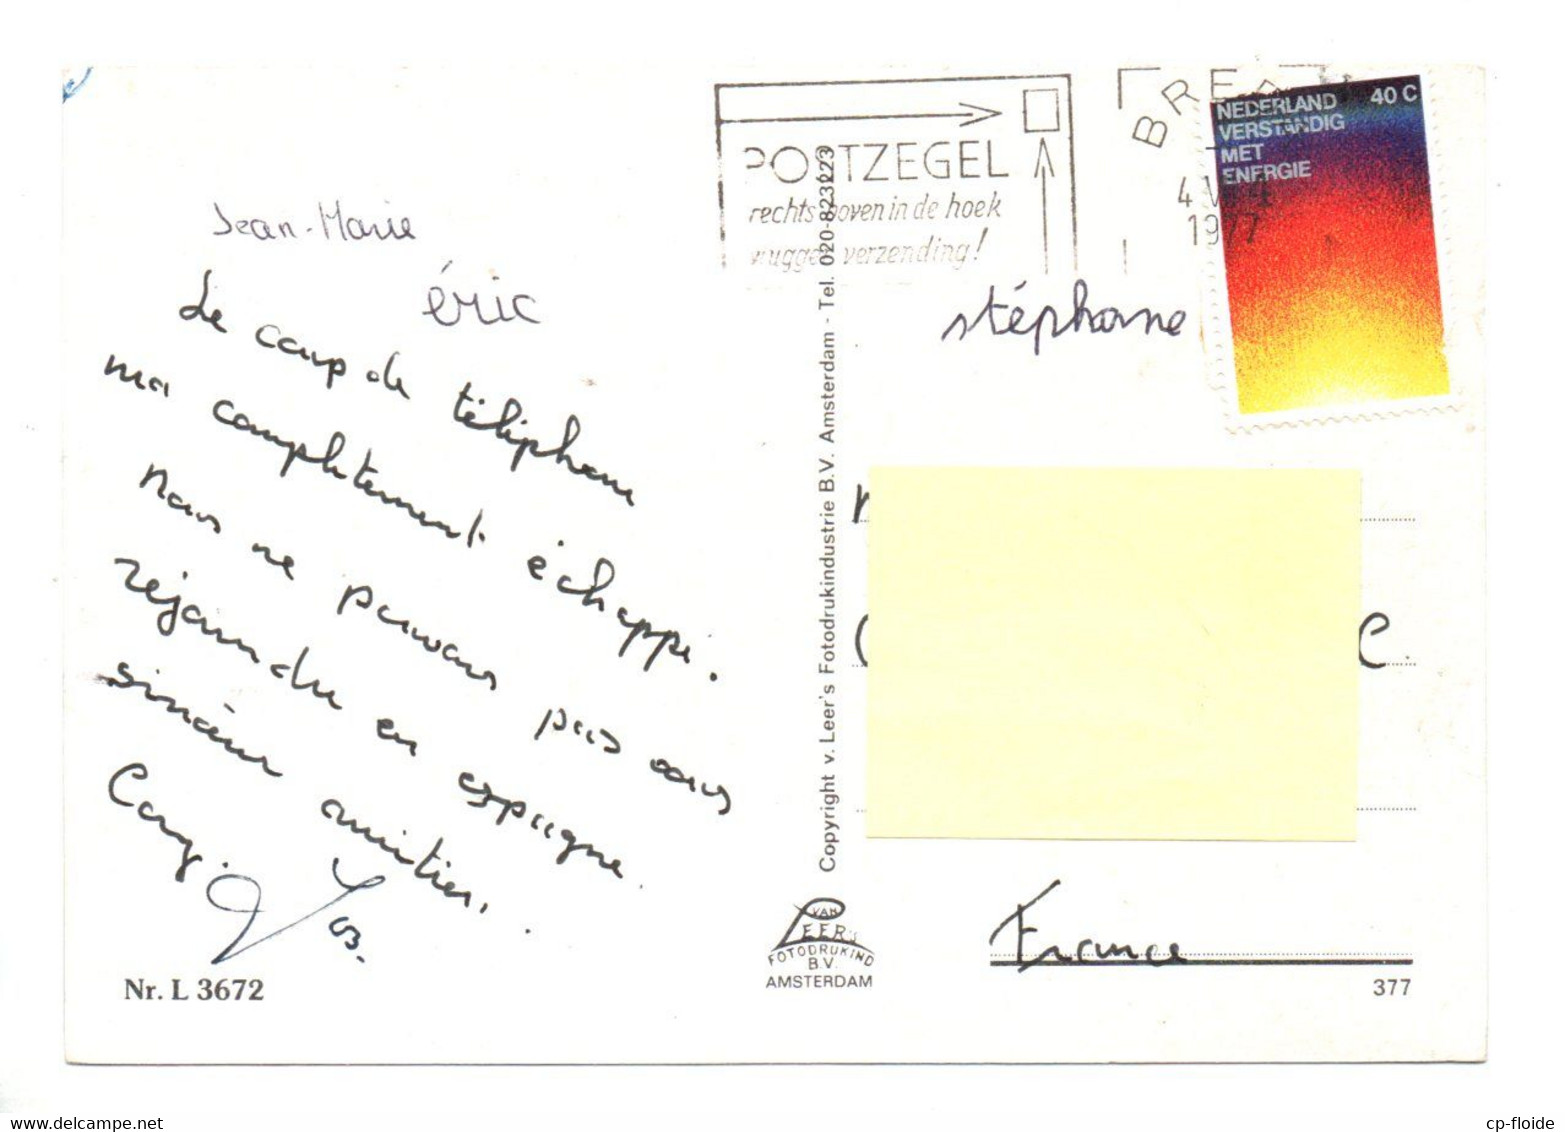 Jean-Marie
éric
Le coup de téléphone
ma complètement échappé.
Nous ne pouvons pas vous
rejoindre en espagne.
sincère amitiés.
Cary.
Jos.
Nr. L 3672
Copyright v. Leer's Fotodrukindustrie B.V. Amsterdam - Tel. 020-823223
VAN
LEER'S
FOTODRUKIND
B.V.
AMSTERDAM
POSTZEGEL
rechts boven in de hoek
vlugger verzending!
BRE
4 V
1977
NEDERLAND 40 C
VERSTANDIG
MET
ENERGIE
stéphane
France
377
cp-floide